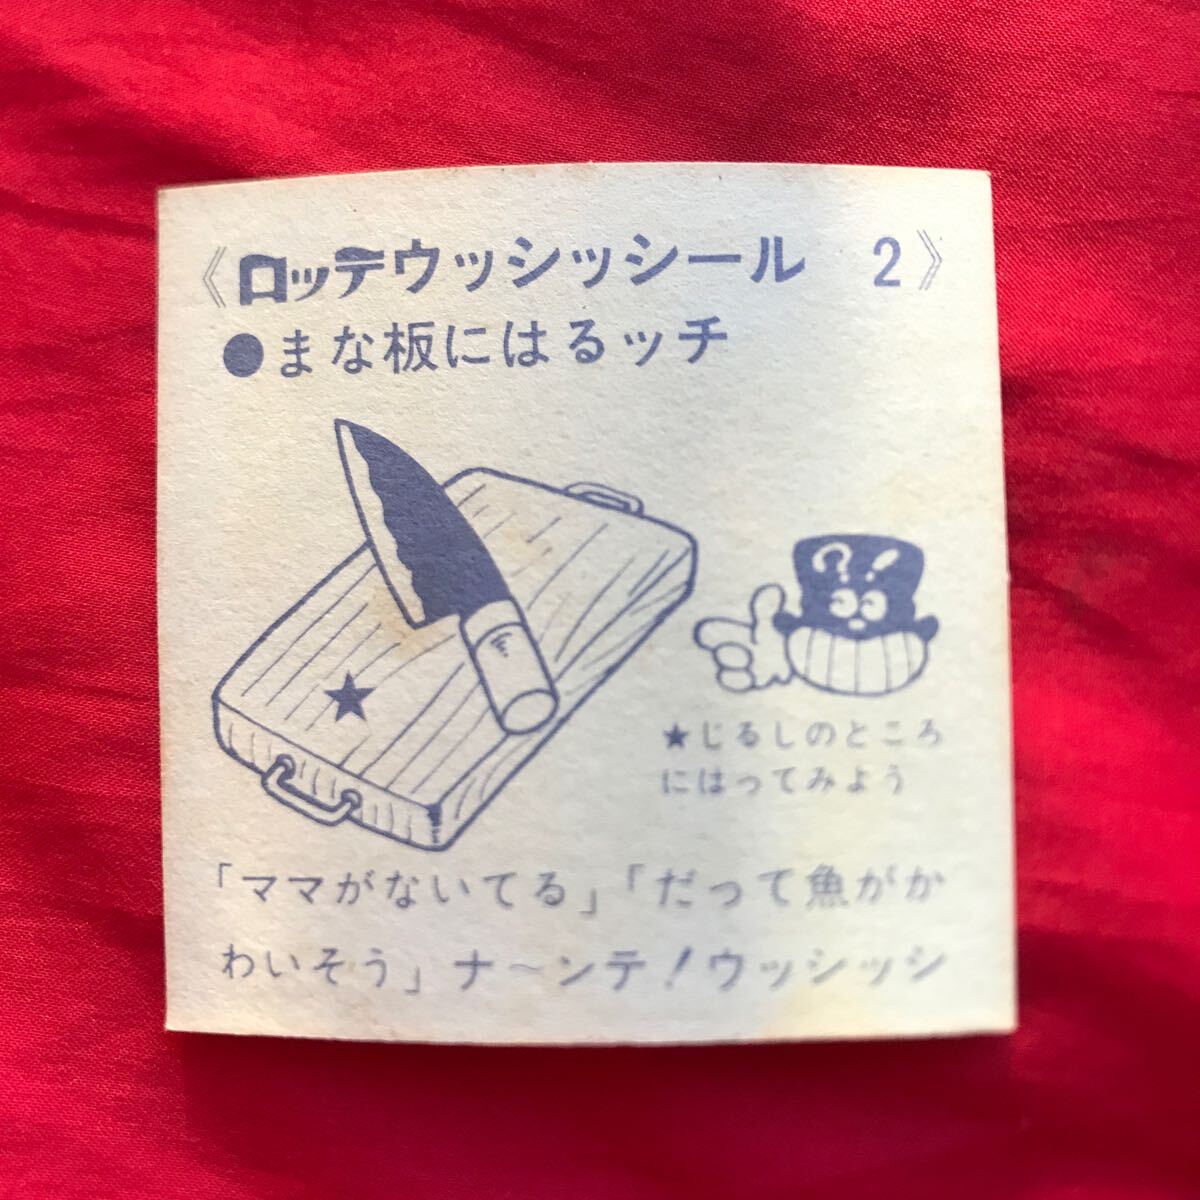 《ロッテウッシッシール 2》
●まな板にはるッチ
?!
★じるしのところ
にはってみよう
「ママがないてる」「だって魚がか
わいそう」ナ〜ンテ!ウッシッシ